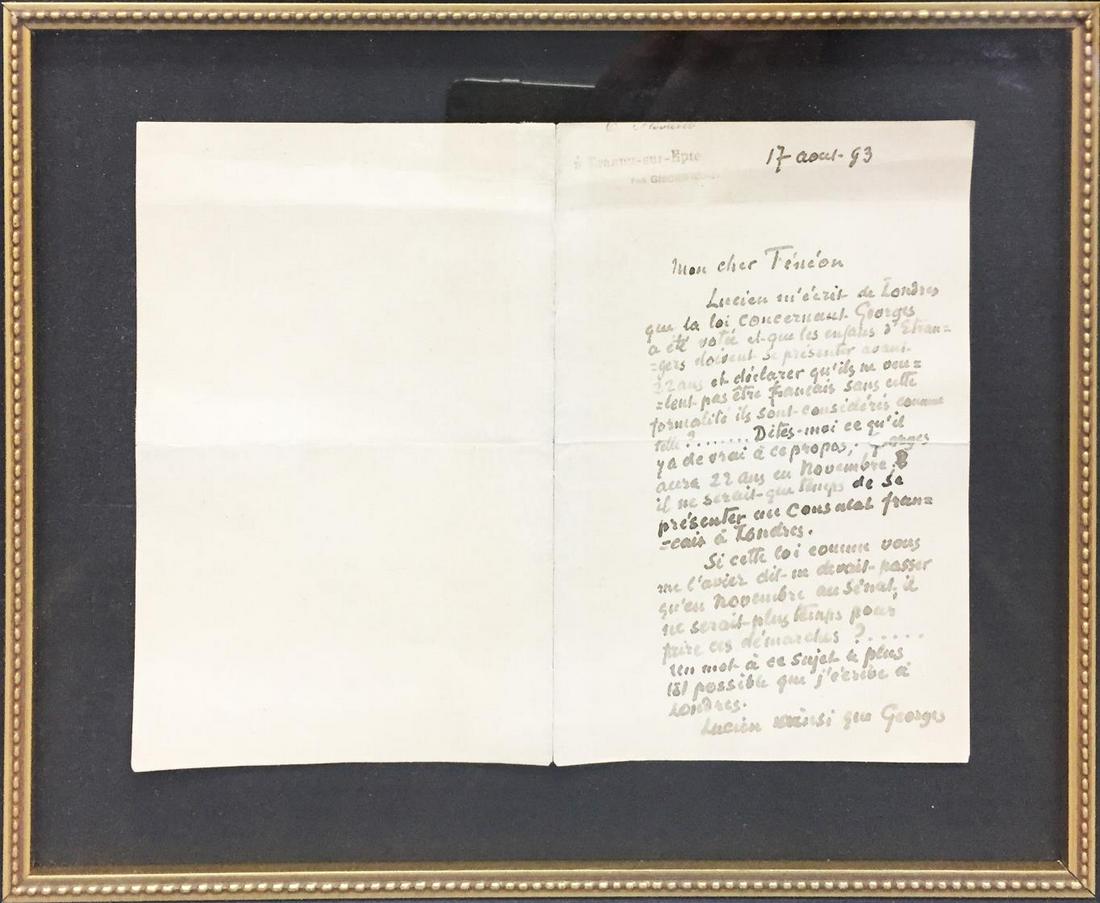 à Eragny-sur-Epte
par Gisors
17 aout 93
Mon cher Fénéon
Lucien m'écrit de Londres
que la loi concernant Georges
a été votée et que les enfans d'Etran=
=gers doivent se présenter avant
22 ans et déclarer qu'ils ne veu=
=lent pas être français sans cette
formalité ils sont considérés comme
telle ?....... Dites-moi ce qu'il
y a de vrai à ce propos, Georges
aura 22 ans en Novembre,
il ne serait que temps de se
présenter au Consulat fran=
=cais à Londres.
Si cette loi comme vous
me l'aviez dit ne devait passer
qu'en Novembre au Sénat, il
ne serait plus temps pour
faire ces démarches ?......
Un mot à ce sujet le plus
tôt possible que j'écrive à
Londres.
Lucien ainsi que Georges